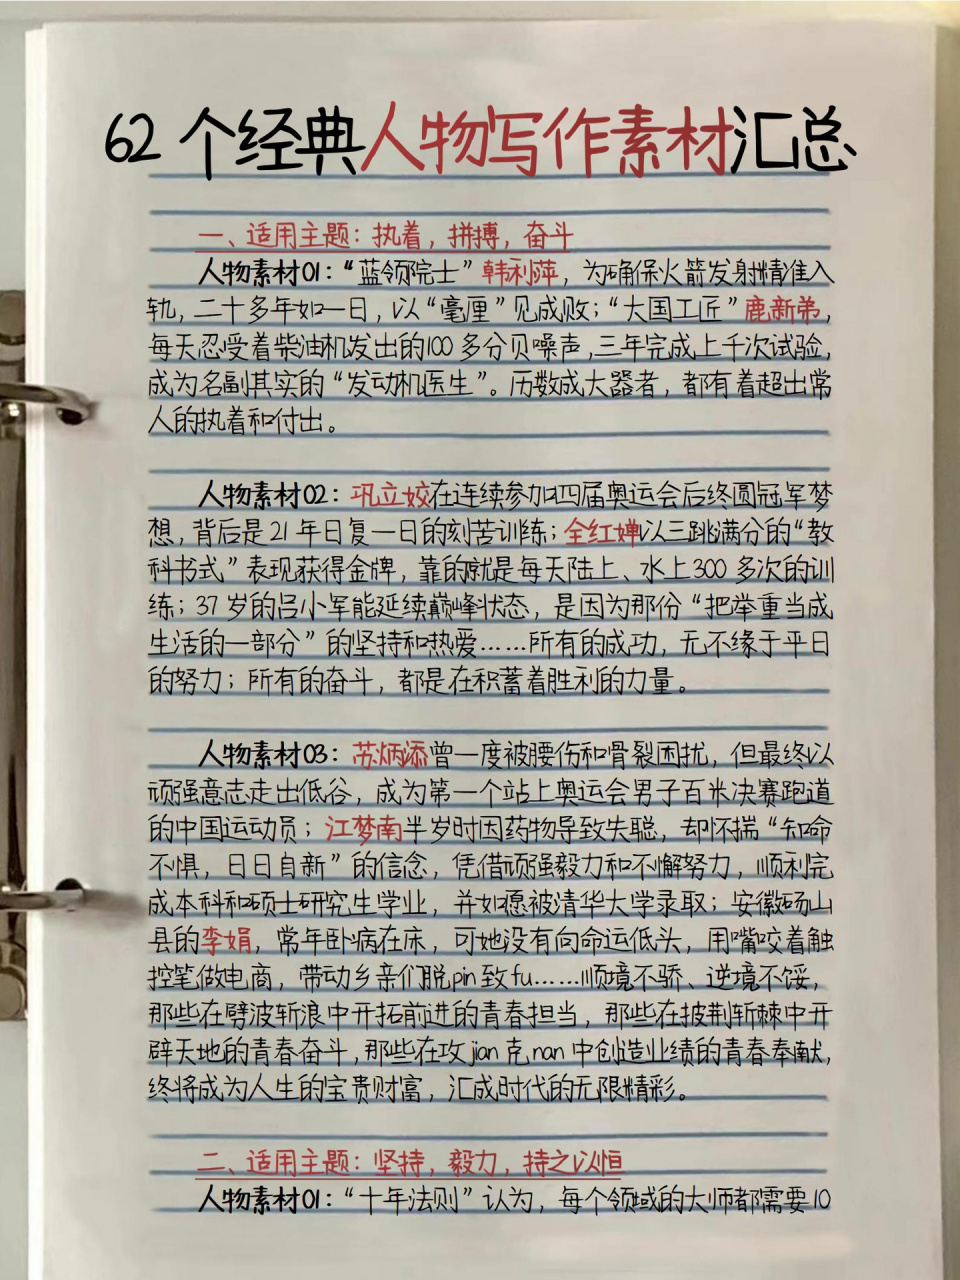 62个经典人物写作素材汇总
一、适用主题：执着，拼搏，奋斗
人物素材01：“蓝领院士”韩利萍，为确保火箭发射精准入
轨，二十多年如一日，以“毫厘”见成败；“大国工匠”鹿新弟，
每天忍受着柴油机发出的100多分贝噪声，三年完成上千次试验，
成为名副其实的“发动机医生”。历数成大器者，都有着超出常
人的执着和付出。
人物素材02：巩立姣在连续参加四届奥运会后终圆冠军梦
想，背后是21年日复一日的刻苦训练；全红婵以三跳满分的“教
科书式”表现获得金牌，靠的就是每天陆上、水上300多次的训
练；37岁的吕小军能延续巅峰状态，是因为那份“把举重当成
生活的一部分”的坚持和热爱……所有的成功，无不缘于平日
的努力；所有的奋斗，都是在积蓄着胜利的力量。
人物素材03：苏炳添曾一度被腰伤和骨裂困扰，但最终以
顽强意志走出低谷，成为第一个站上奥运会男子百米决赛跑道
的中国运动员；江梦南半岁时因药物导致失聪，却怀揣“知命
不惧，日日自新”的信念，凭借顽强毅力和不懈努力，顺利完
成本科和硕士研究生学业，并如愿被清华大学录取；安徽砀山
县的李娟，常年卧病在床，可她没有向命运低头，用嘴咬着触
控笔做电商，带动乡亲们脱pin致fu……顺境不骄、逆境不馁，
那些在劈波斩浪中开拓前进的青春担当，那些在披荆斩棘中开
辟天地的青春奋斗，那些在攻jian克nan中创造业绩的青春奉献，
终将成为人生的宝贵财富，汇成时代的无限精彩。
二、适用主题：坚持，毅力，持之以恒
人物素材01：“十年法则”认为，每个领域的大师都需要10